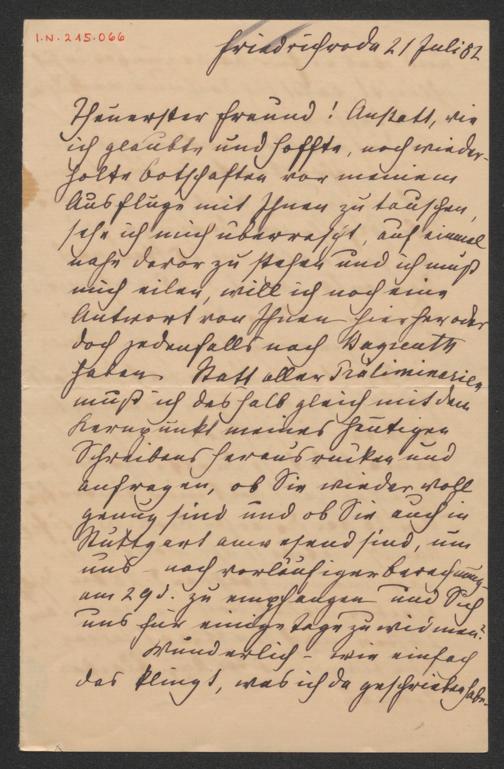 I.N. 215.066
Friedrichroda 21 Juli 82
Theuerster Freund! Anstatt, wie
ich glaubte und hoffte, noch wieder-
holte Botschaften vor meinem
Ausfluge mit Ihnen zu tauschen,
sehe ich mich überrascht, auf einmal
nahe davor zu stehen und ich muß
mich eilen, will ich noch eine
Antwort von Ihnen hierher oder
doch jedenfalls nach Bayreuth
haben. Statt aller Präliminarien
muß ich deshalb gleich mit dem
Kernpunkt meines heutigen
Schreibens herausrücken und
anfragen, ob Sie wieder wohl
genug sind und ob Sie auch in
Stuttgart anwesend sind, um
uns – nach vorläufiger Berechnung
am 29 d. zu empfangen und Sich
uns für einige Tage zu widmen?
Wunderlich – wie einfach
das klingt, was ich da geschrieben habe.